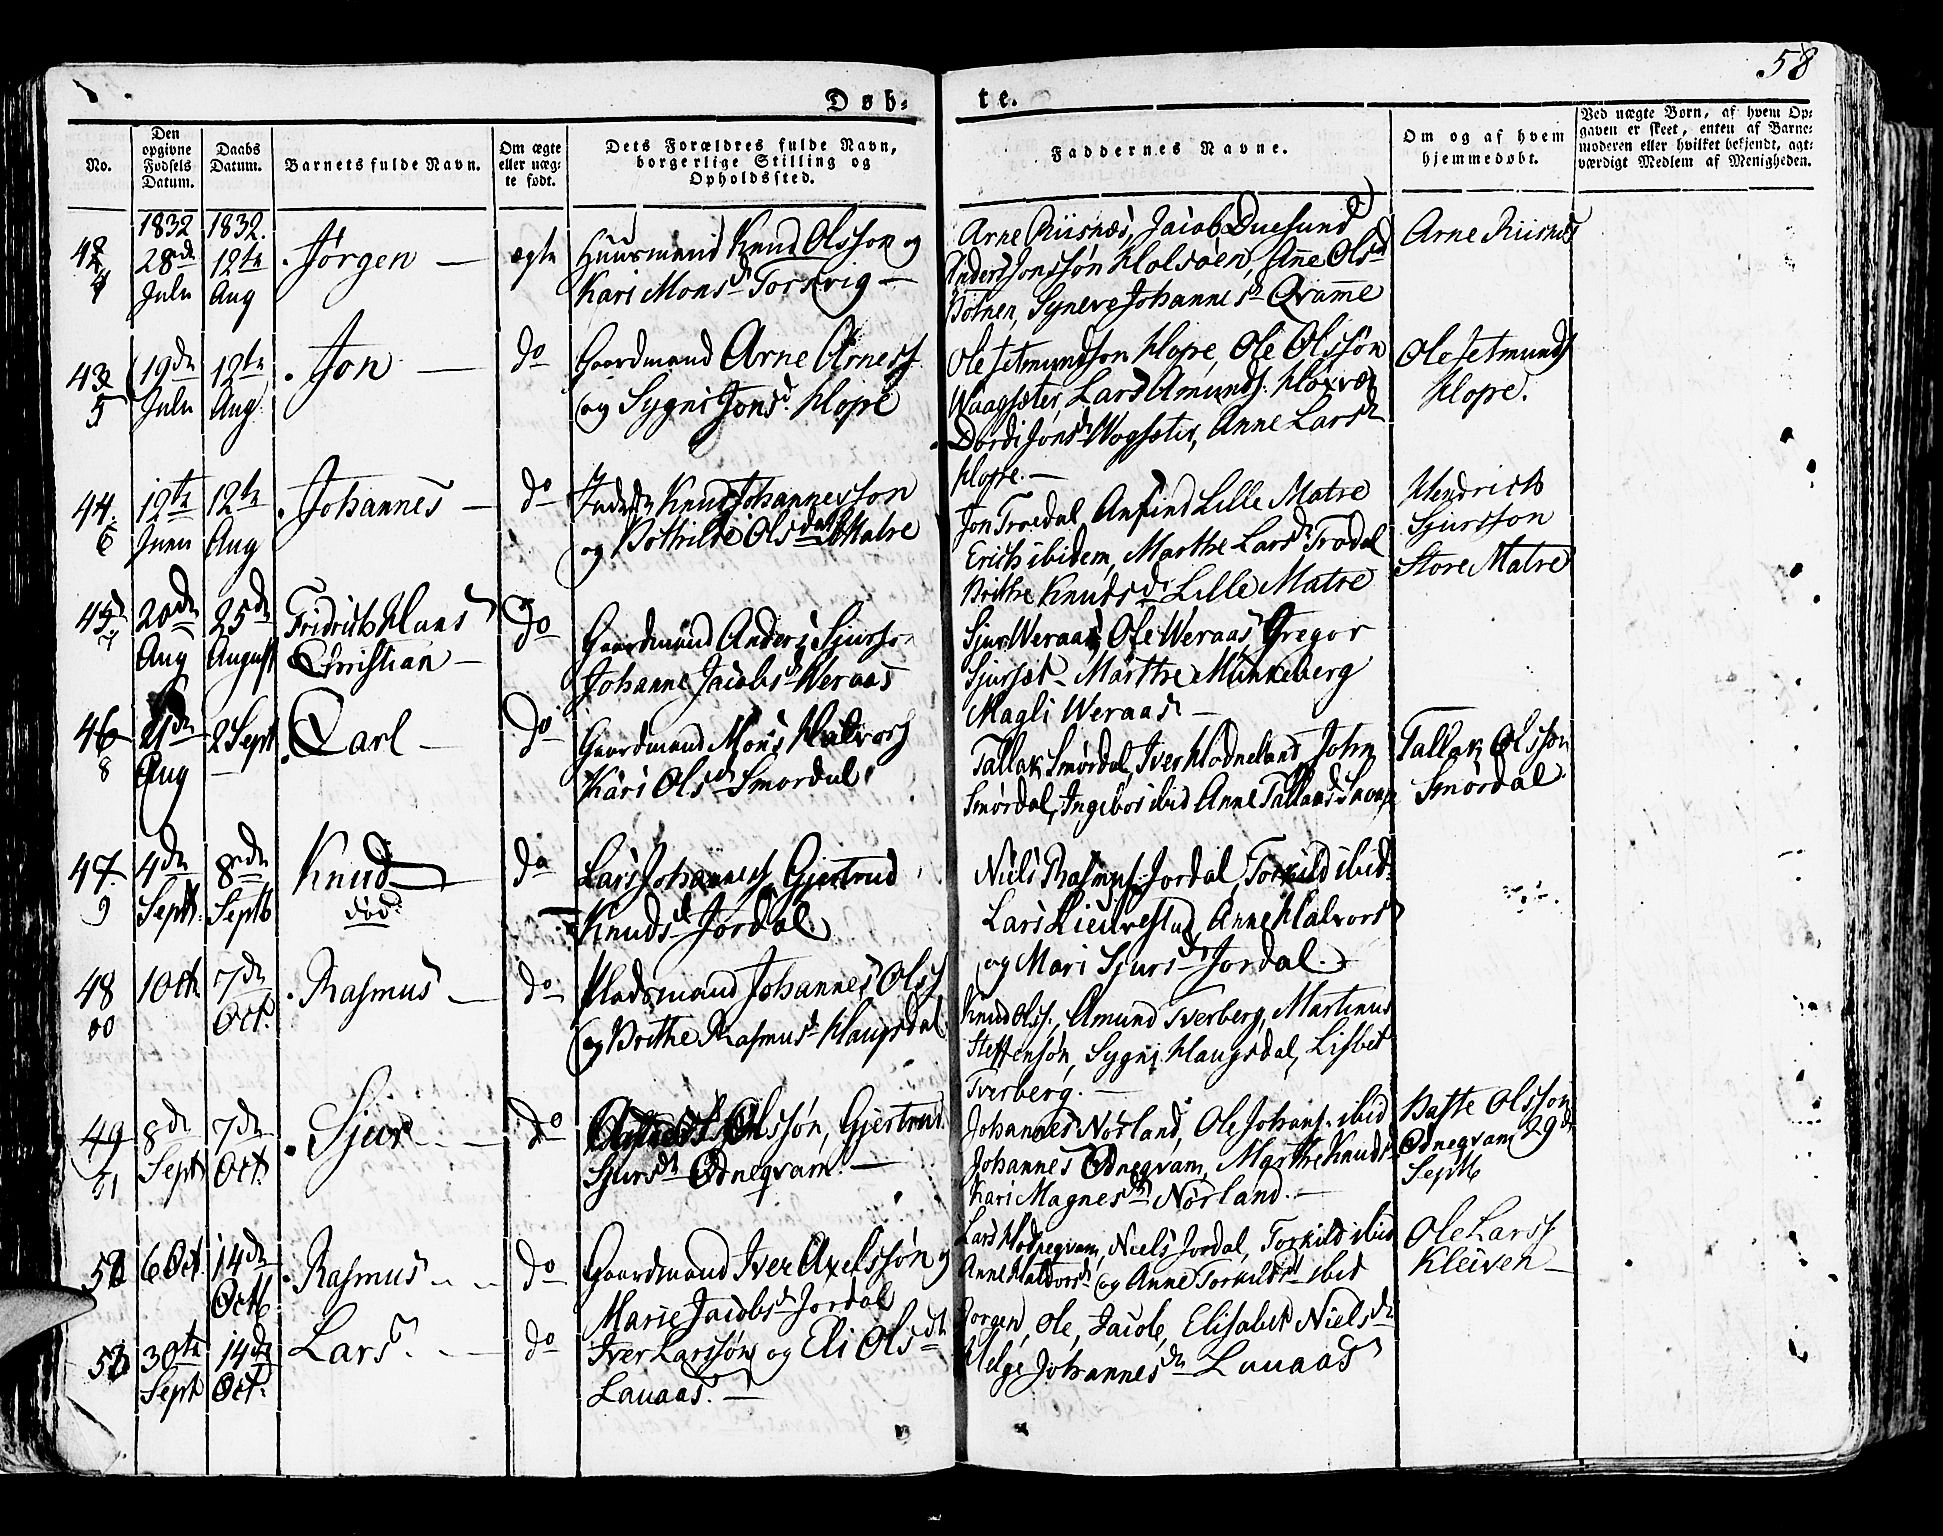 58
Døb- te.
No.
Den opgivne Fødsels Datum.
Daabs Datum.
Barnets fulde Navn.
Om ægte eller uægte født.
Dets Forældres fulde Navn, borgerlige Stilling og Opholdssted.
Faddernes Navne.
Om og af hvem hjemmedøbt.
Ved uægte Børn, af hvem Opgaven er skeet, enten af Barnemoderen eller hvilket bekjendt, agtværdigt Medlem af Menigheden.
1832 1832
42
28de Julii
12te Aug
Jørgen
ægte
Huusmand Knud Olsson og
Kari Monsd. Torsvig
Arne Riisnæs, Jacob Duesund
Anders Jonssøn Holsøen, Anne Olsd
Botnen, Syneve Johannesd Qvamme
Arne Riisnes
43
5
19de Julii
12te Aug
Jon
do
Gaardmand Arne Arness.
og Sygni Jonsd. Hope
Ole Jetmundson Hope, Ole Olssøn
Waagseter, Lars Amunds.
Dordi Jonsd Wogseter, Anne Larsd
Hope.
Ole Jetmunds
Hope.
44
6
12te
12te Aug
Johannes
do
Knud Johannesson
og Bothilde Olsd. Matre
Jon Troedal Anfind Lille Matre
Erich ibidem, Marthe Larsd Trodal
Brithe Knudsd. Lille Matre
Hendrich
Sjursson
Store Matre
45
20de Aug
25de August
Fridrich Hans
Christian
do
Gaardmand Anders Sjurss.
Johanne Jacobsd Weraas
Sjur Weraas, Ole Weraas, Gregor
Sjursæt Marthe Munkeberg
Magli Weraas
46
8
21de Aug
2 Sept
Carl
do
Gaardmand Mons Halvors
Kari Olsd Smørdal
Tallak Smørdal, Iver Hodneland John
Smørdal, Ingebor ibid Anne
Tallak Olsson
Smørdal
47
9
4de Septb.
8de Septb
Knud
død
do
Lars Johannes Gjertrud
Knudsd Jordal
Niels Rasmus. Jordal, Torkild ibid.
Lars Anne Halvorsd
og Mari Sjursd Jordal.
48
10 Oct.
7de Oct.
Rasmus
do
Pladsmand Johannes Olss
og Brithe Rasmusd Haugsdal
Knud Olss. Amund Tverberg, Martinus
Steffensøn, Sygni Haugsdal, Lisbet
Tverberg.
49
8de Sept
7de Oct
Sjur
do
Olssøn, Gjertrud
Sjursd Odneqvam.
Johannes Nørland, Ole Johans. ibid
Johannes Odneqvam, Marthe Knudsd
Kari Magnesd Nørland.
Olsson
Odneqvam 29de
Septb
50
6 Oct.
14de Octb
Rasmus
do
Gaardmand Iver Axelssøn og
Marie Jacobsd Jordal
Lars Hodneqvam, Niels Jordal, Torkild ibid
Anne Halvorsd og Anne Torkildsd ibid
Ole Larss
Kleiven
30te Sept
14de Oct.
Lars
do
Iver Larssøn og Eli Olsd
Lauaas.
Jørgen, Ole, Jacob, Elisabet Nielsd
Helge Johannesd Lauaas